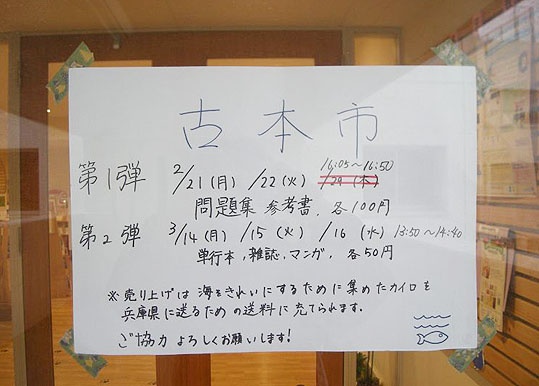 古本市
第1弾 2/21(月) /22(火) /24(木) 16:05〜16:50
問題集 参考書、各100円
第2弾 3/14(月) /15(火) /16(水) 13:50〜14:40
単行本、雑誌、マンガ、各50円
※売り上げは 海をきれいにするために集めたカイロを
兵庫県に送るための送料に充てられます。
ご協力よろしくお願いします!